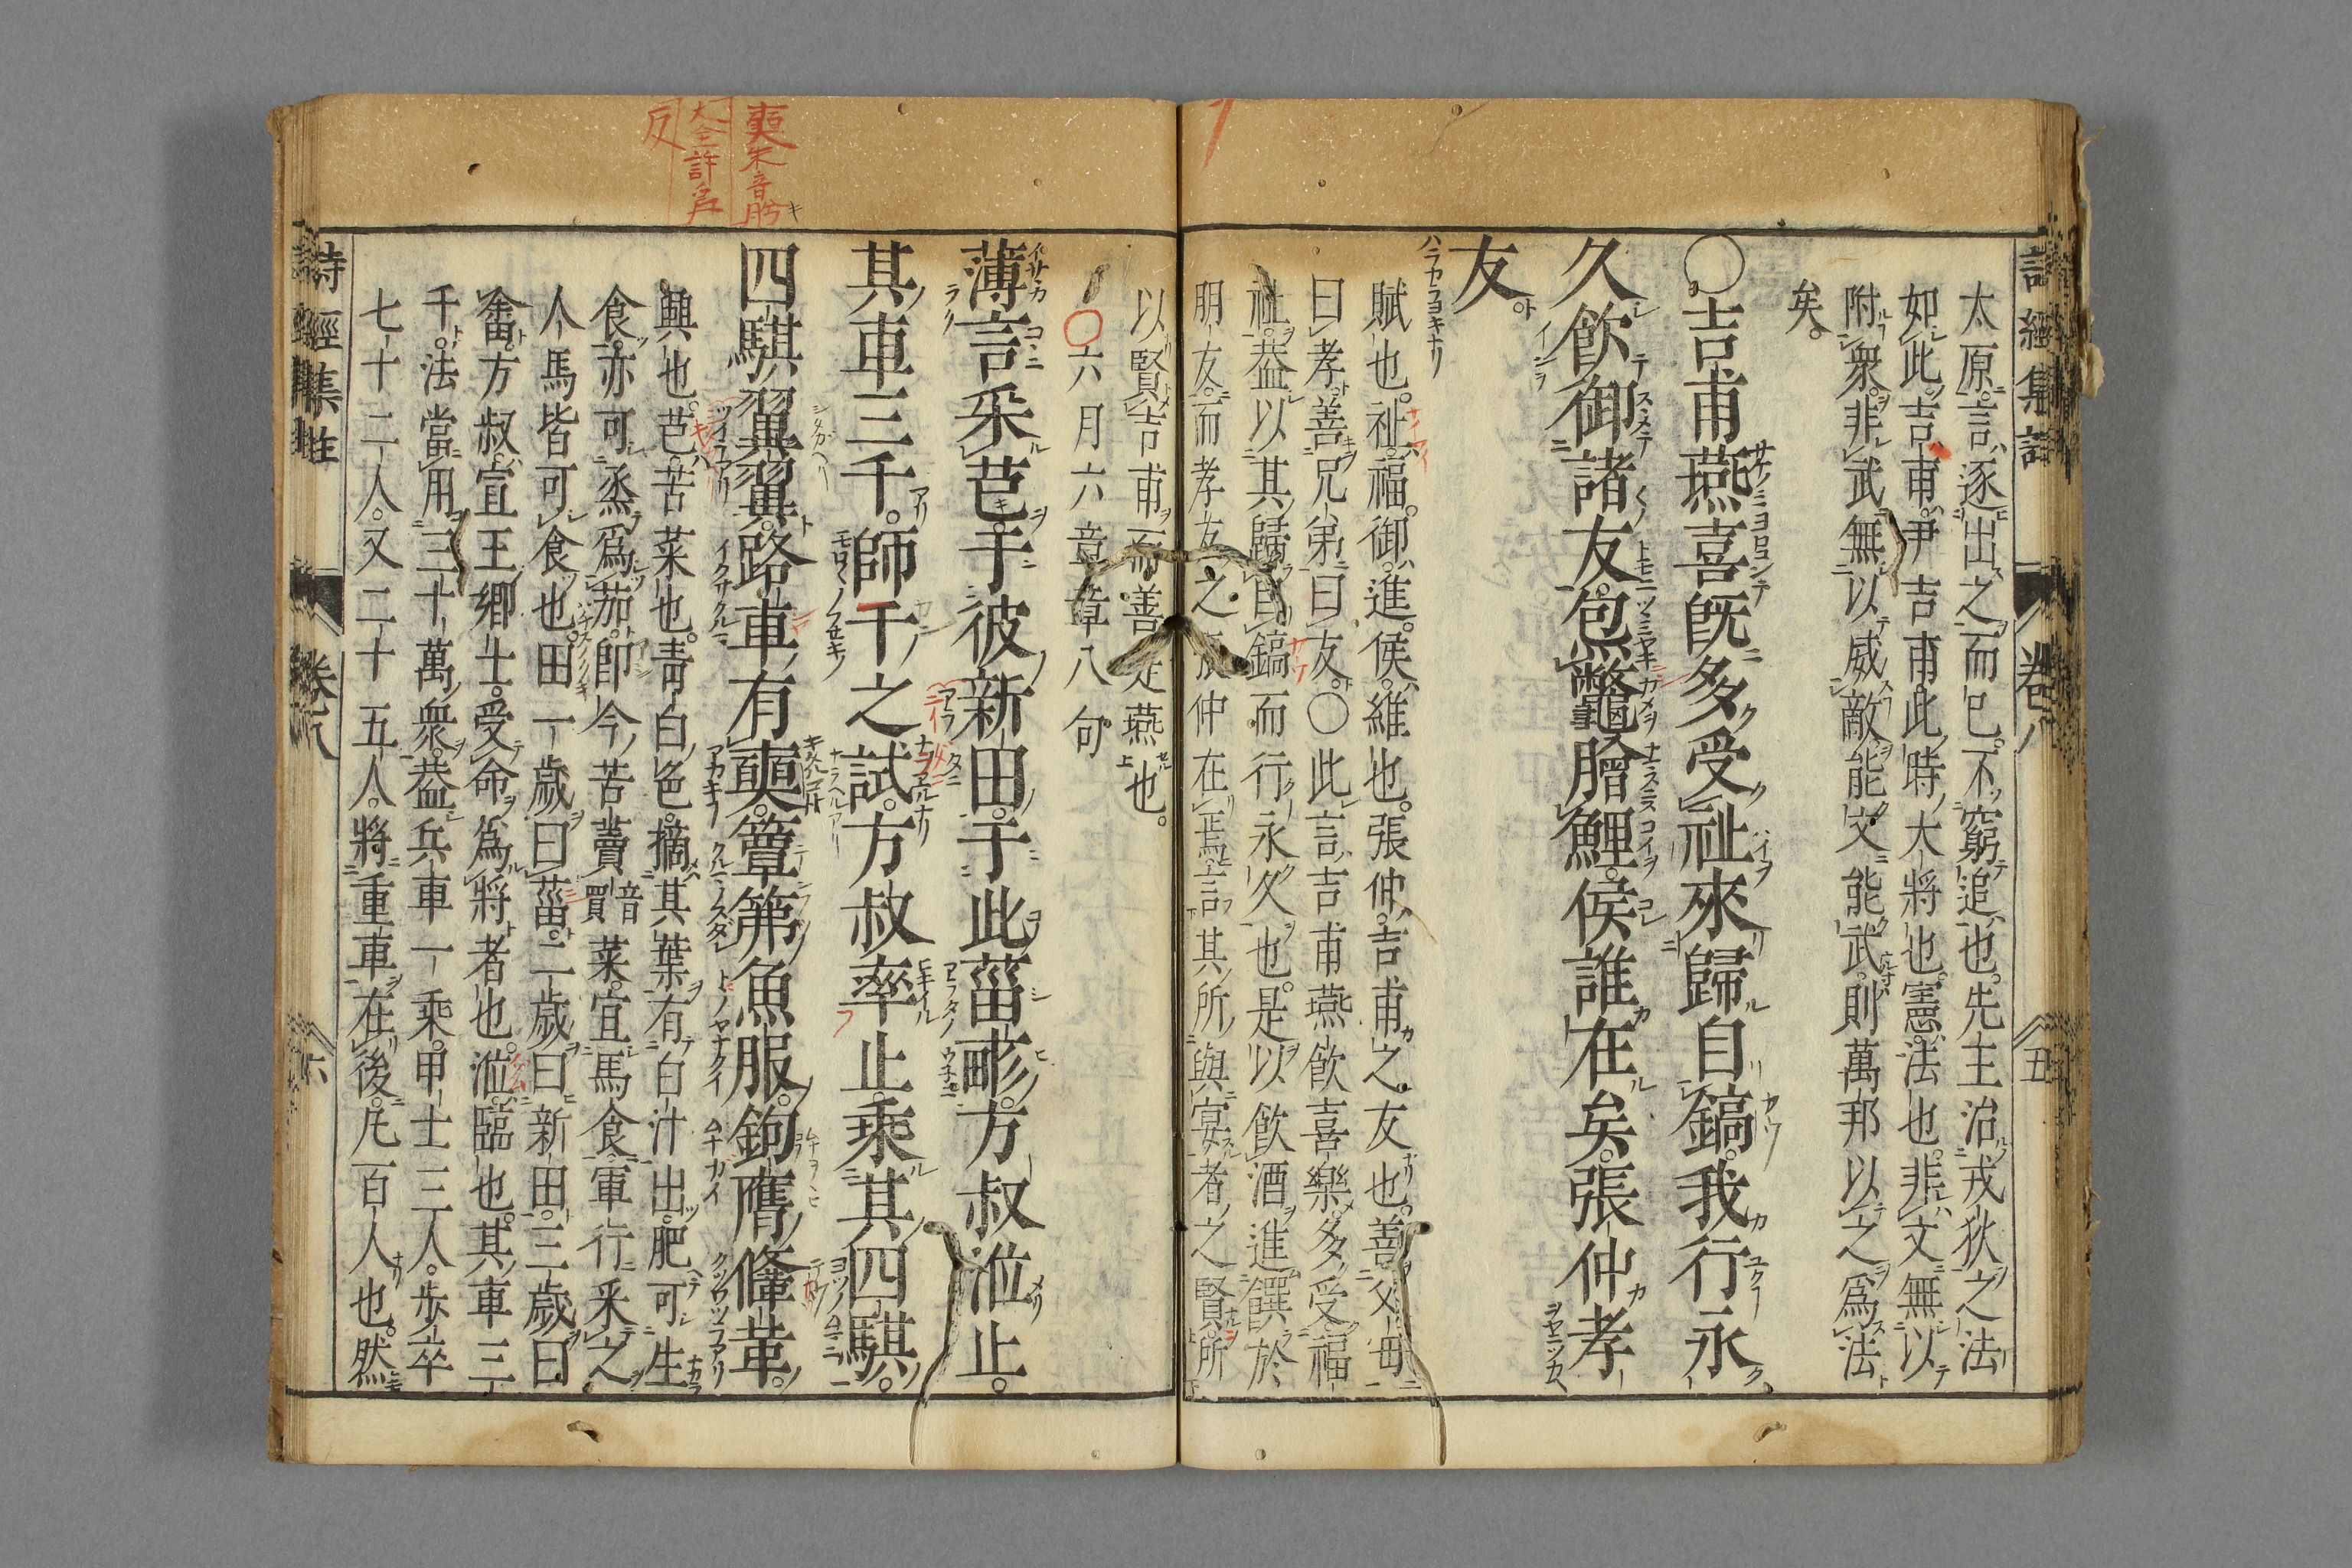 詩經集註 卷八 五
太原。言逐出之而已。不窮追也。先王治戎狄之法
如此。吉甫。尹吉甫。此時大將也。憲。法也。非文無以
附衆。非武無以威敵。能文能武。則萬邦以之爲法
矣。
○吉甫燕喜既多受祉來歸自鎬。我行永
久飲御諸友。炰鼈膾鯉。侯誰在矣。張仲孝
友。
賦也。祉。福。御。進。侯。維也。張仲。吉甫之友也。善父母
曰孝。善兄弟曰友。○此言吉甫燕飲喜樂。多受福
祉。葢以其歸自鎬而行永久也。是以飲酒進饌於
朋友。而孝友之張仲在焉。言其所與宴者之賢。所
以賢吉甫而善是燕也。
○六月六章章八句
薄言采芑。于彼新田。于此菑畝。方叔涖止。
其車三千。師干之試。方叔率止。乘其四騏。
四騏翼翼。路車有奭。簟茀魚服。鉤膺鞗革。
興也。芑。苦菜也。青白色。摘其葉有白汁出。肥可生
食。亦可蒸爲茹。即今苦蕒音買菜。宜馬食。軍行采之
人馬皆可食也。田一歲曰菑。二歲曰新田。三歲曰
畬。方叔。宣王卿士。受命爲將者也。涖。臨也。其車三
千。法當用三十萬衆。葢兵車一乘。甲士三人。步卒
七十二人。又二十五人。將重車在後。凡百人也。然
詩經集註 卷八 六
奭朱音肹
大全許力
反